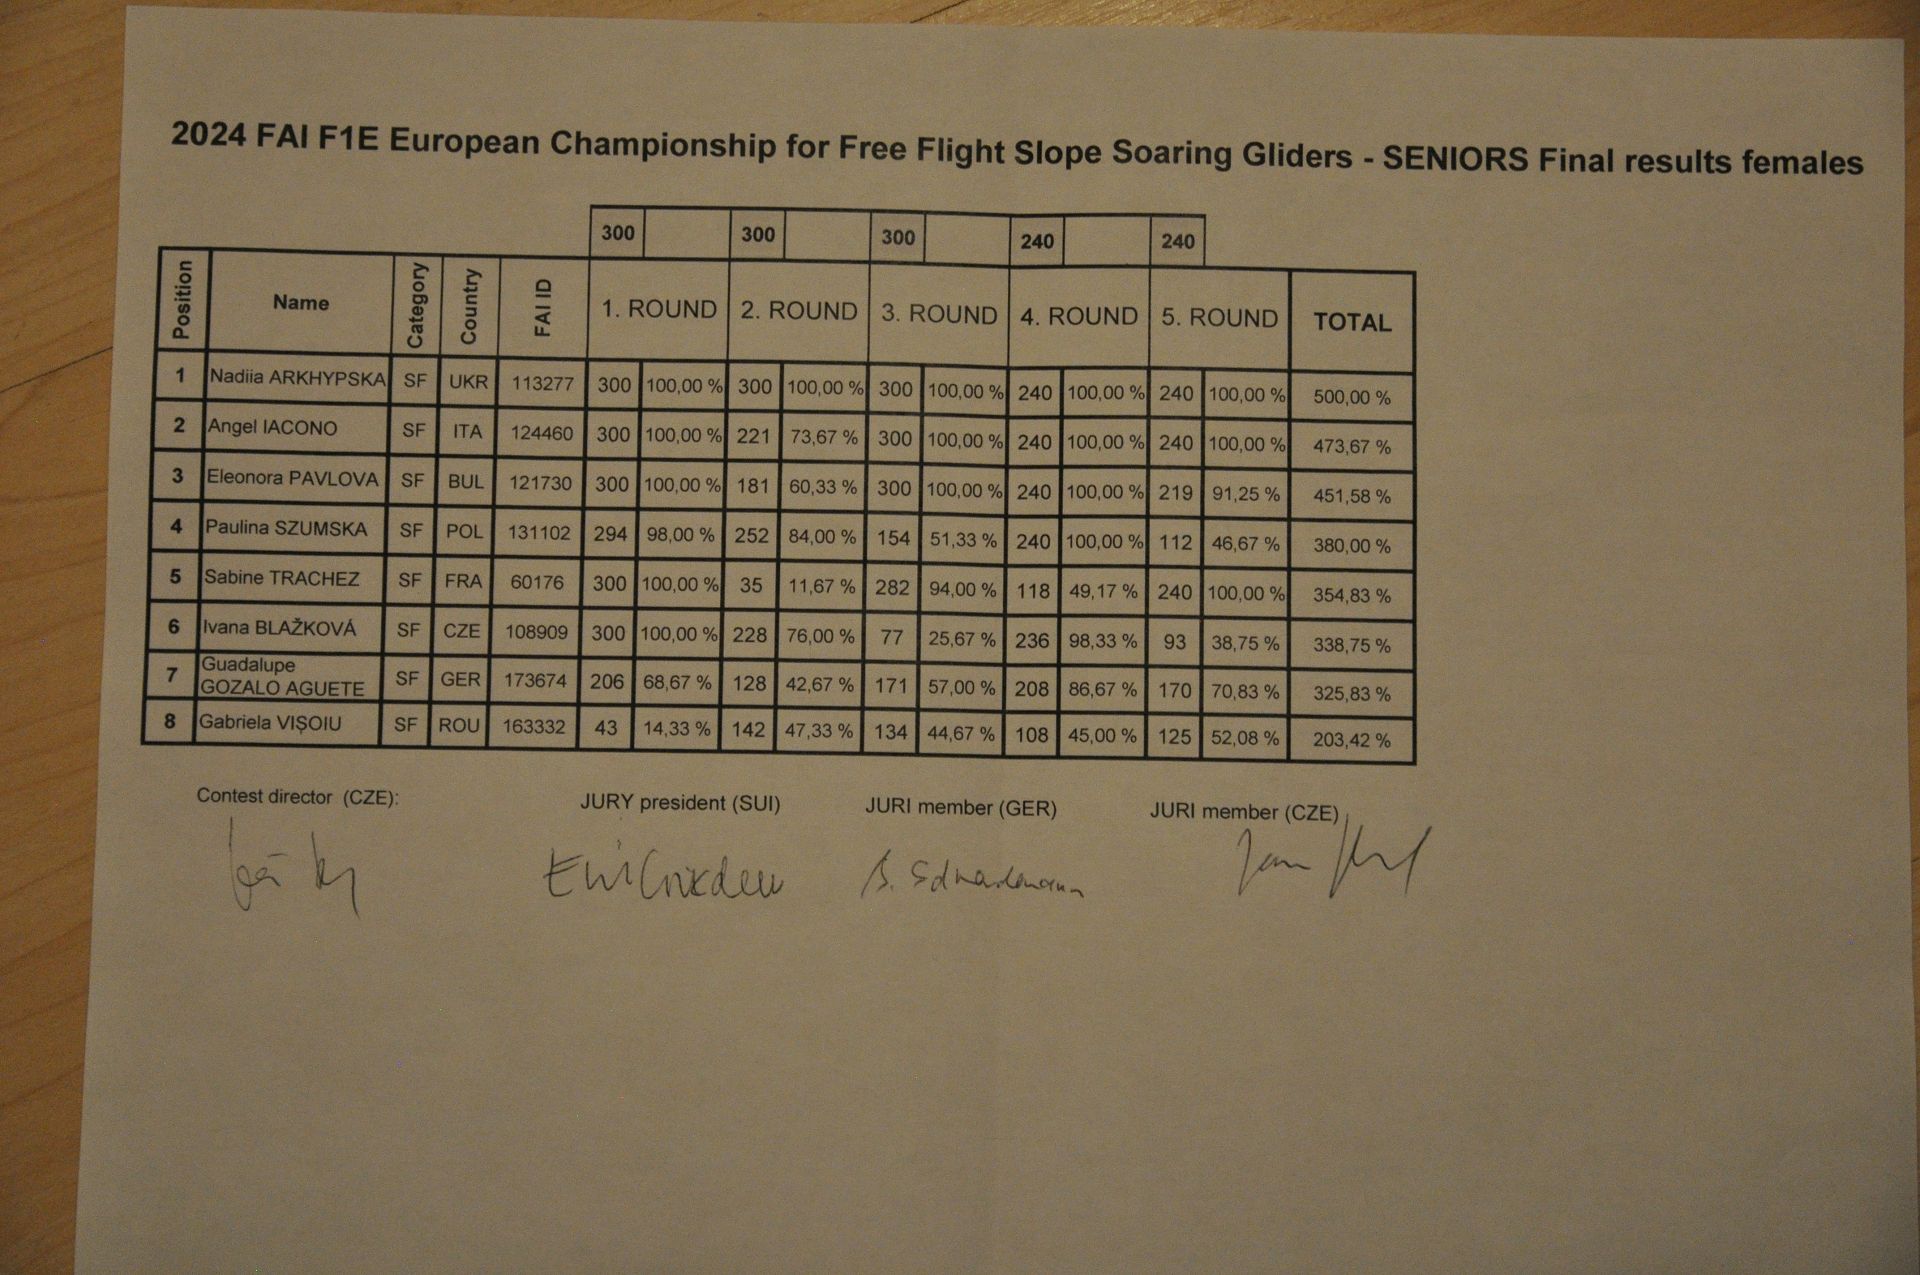 2024 FAI F1E European Championship for Free Flight Slope Soaring Gliders - SENIORS Final results females
300 300 300 240 240
Position Name Category Country FAI ID 1. ROUND 2. ROUND 3. ROUND 4. ROUND 5. ROUND TOTAL
1 Nadiia ARKHYPSKA SF UKR 113277 300 100,00 % 300 100,00 % 300 100,00 % 240 100,00 % 240 100,00 % 500,00 %
2 Angel IACONO SF ITA 124460 300 100,00 % 221 73,67 % 300 100,00 % 240 100,00 % 240 100,00 % 473,67 %
3 Eleonora PAVLOVA SF BUL 121730 300 100,00 % 181 60,33 % 300 100,00 % 240 100,00 % 219 91,25 % 451,58 %
4 Paulina SZUMSKA SF POL 131102 294 98,00 % 252 84,00 % 154 51,33 % 240 100,00 % 112 46,67 % 380,00 %
5 Sabine TRACHEZ SF FRA 60176 300 100,00 % 35 11,67 % 282 94,00 % 118 49,17 % 240 100,00 % 354,83 %
6 Ivana BLAŽKOVÁ SF CZE 108909 300 100,00 % 228 76,00 % 77 25,67 % 236 98,33 % 93 38,75 % 338,75 %
7 Guadalupe
GOZALO AGUETE SF GER 173674 206 68,67 % 128 42,67 % 171 57,00 % 208 86,67 % 170 70,83 % 325,83 %
8 Gabriela VIȘOIU SF ROU 163332 43 14,33 % 142 47,33 % 134 44,67 % 108 45,00 % 125 52,08 % 203,42 %
Contest director (CZE): JURY president (SUI) JURI member (GER) JURI member (CZE)